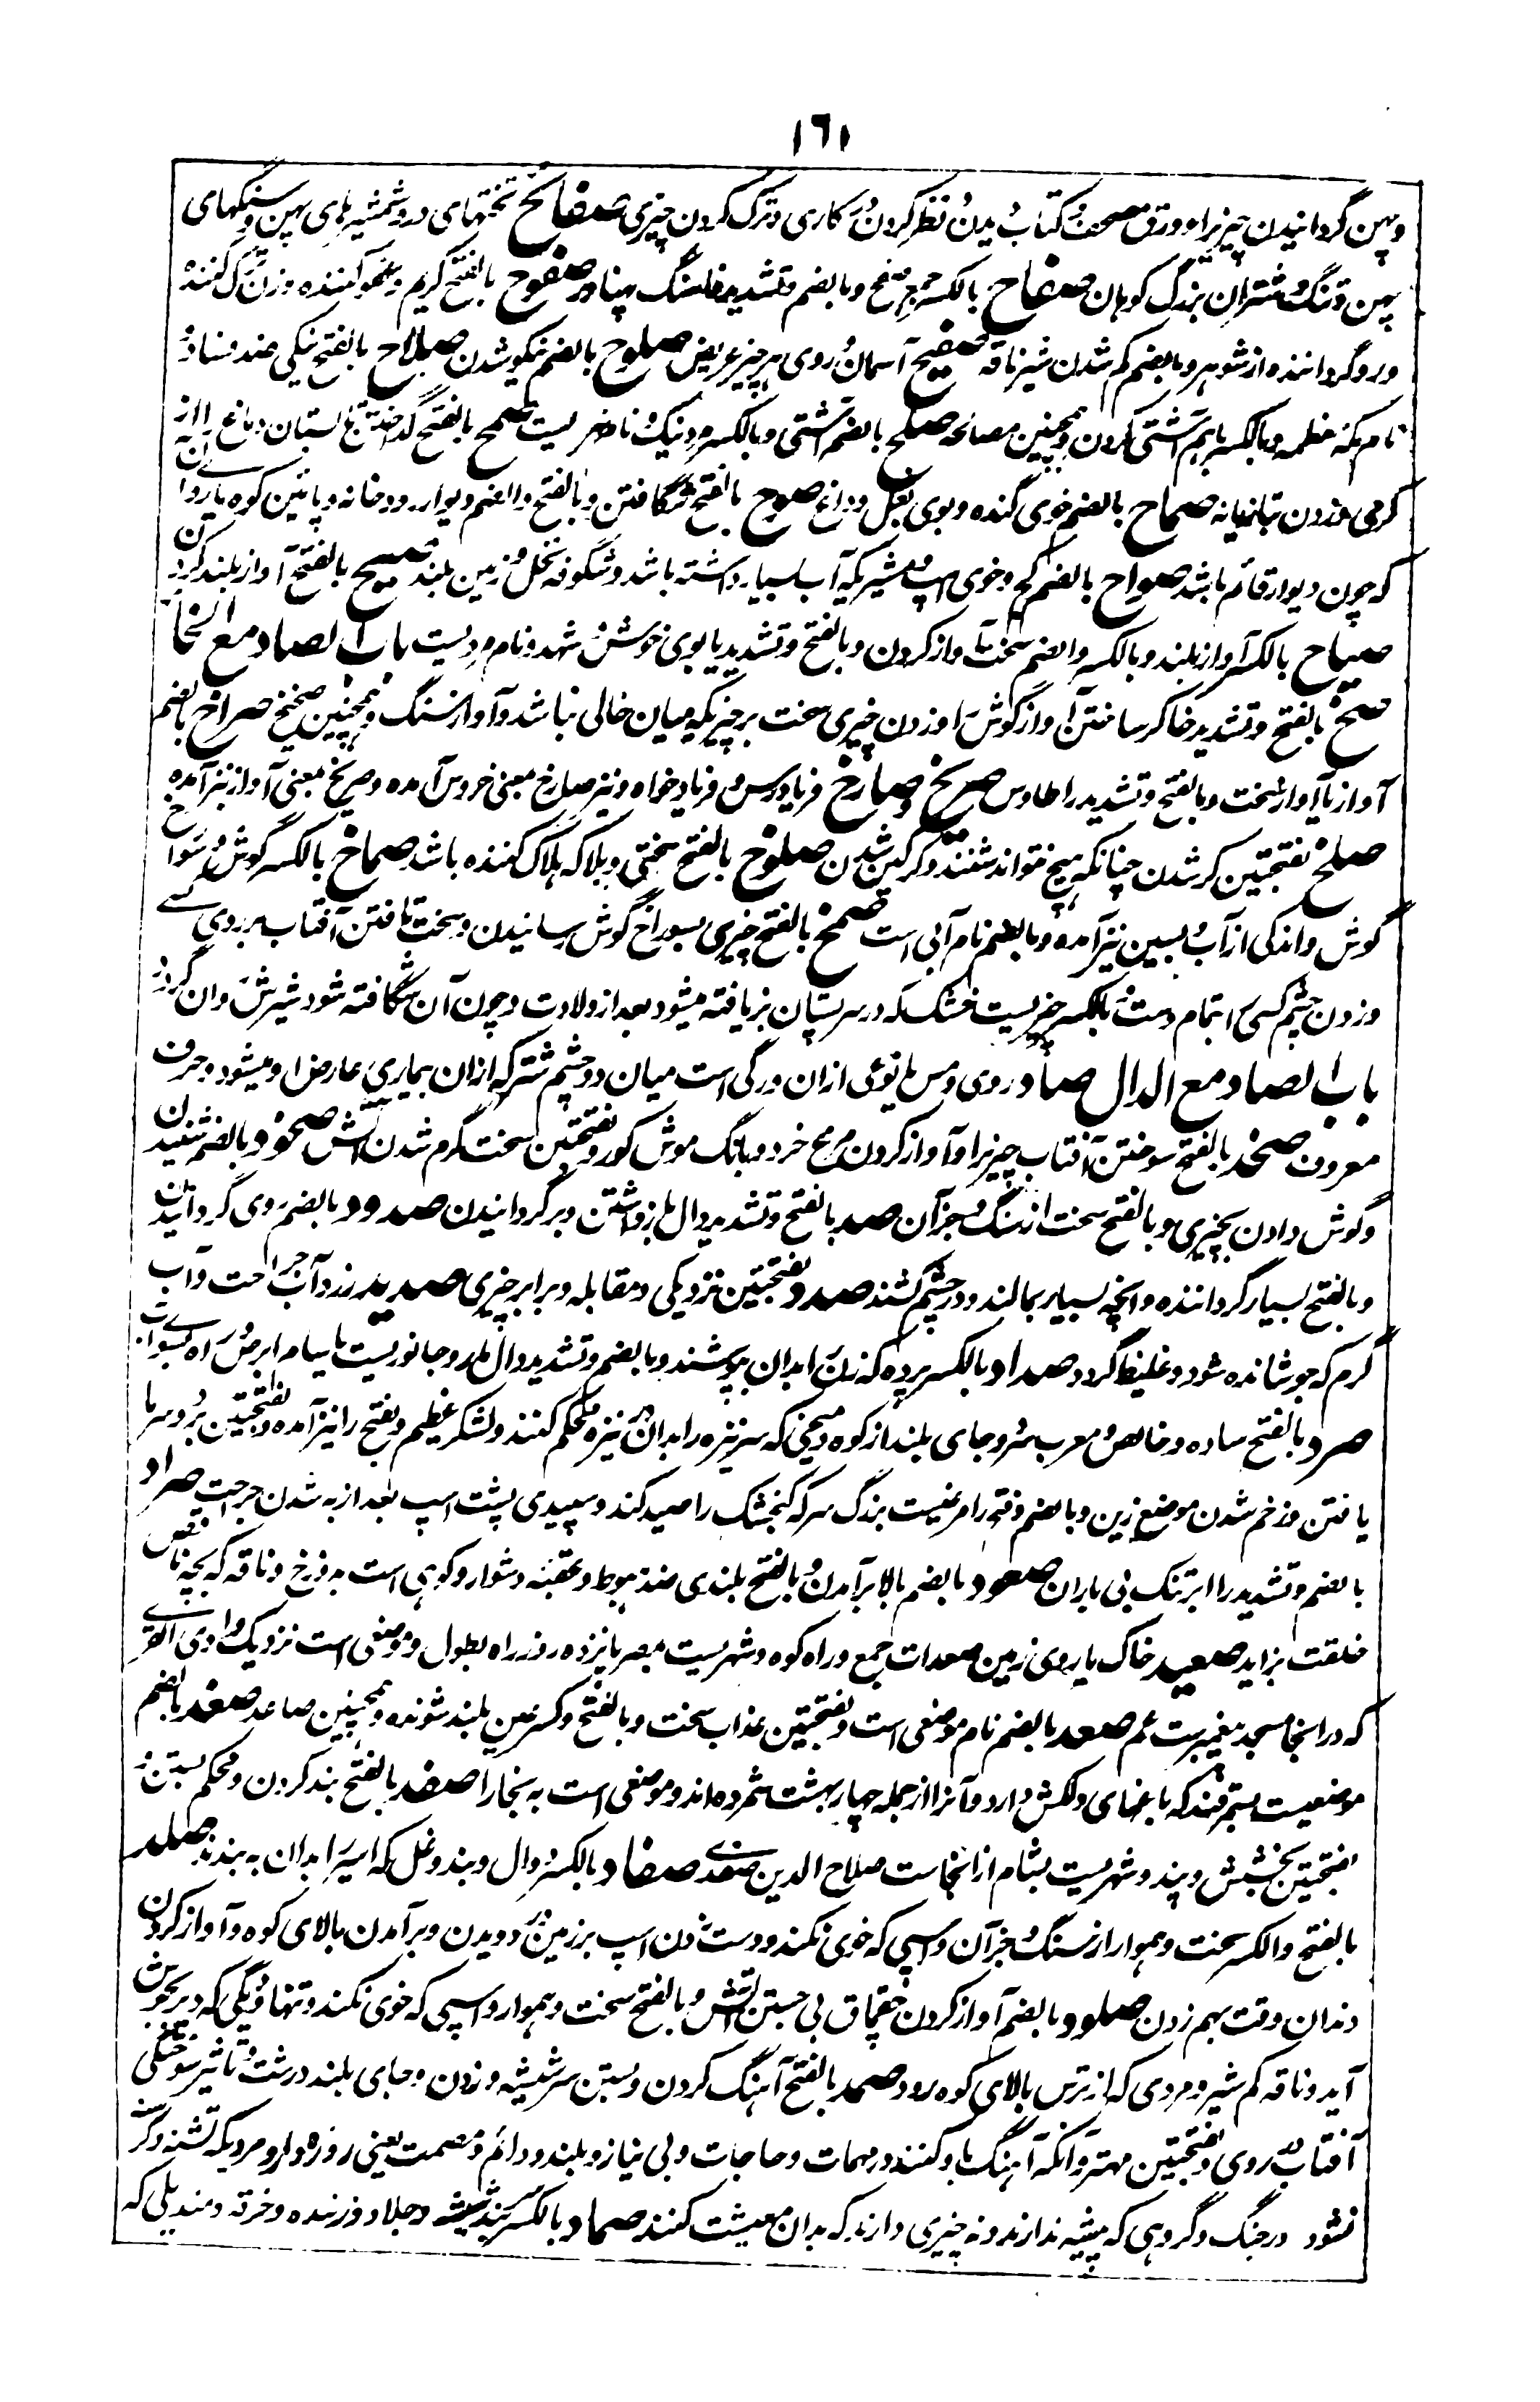 ۱۶۱
وپهن گردانیدن چیزیرا و ورق مصحف و کتاب دیدن و نظر کردن در کاری و ترک کردن چیزی صفائح تختهای در و شمشیرهای پهن و سنگهای
پهن و تنگ و شتران بزرگ کوهان صفاح بالکسر جمع صفح و بالضم و تشدید فا سنگ پهناور صفوح بالفتح کریم و عفو کننده و زن ترک کننده
و رو گرداننده از شوهر و بالضم کم شدن شیر ناقه صفیح آسمان و روی هر چیز عریض صلوح بالضم نیکو شدن صلاح بالفتح نیکی ضد فساد و
نام مکه معظمه و بالکسر باهم آشتی کردن و همچنین مصالحه صلح بالضم آشتی و بالکسر و نیک نام نهریست صمح بالفتح گداختن تابستان دماغ را از
گرمی و زدن بتازیانه صماح بالضم خوی گنده و بوی بغل و داغ صوح بالفتح شگافتن و بالفتح والضم دیوار رودخانه و پائین کوه یا روی آن
که چون دیوار قائم باشد صواح بالضم گچ و خوی اسپ و شیریکه آب بسیار داشته باشد و شگوفه نخل و زمین بلند صیح بالفتح آواز بلند کردن
صیاح بالکسر آواز بلند و بالکسر والضم سخت آواز کردن و بالفتح و تشدید یا بوی خوش و شهد و نام مردیست باب الصاد مع الخاء
صخ بالفتح و تشدید خا کر ساختن آواز گوش را و زدن چیزی سخت بر چیزیکه میان خالی نباشد و آواز سنگ و همچنین صخیخ صراخ بالضم
آواز یا آواز سخت و بالفتح و تشدید را طاوس صریخ و صارخ فریادرس و فریاد خواه و نیز صارخ بمعنی خروس آمده و صریخ بمعنی آواز نیز آمده
صلخ بفتحتین کر شدن چنانکه هیچ نتواند شنید و گرگین شدن صلوخ بالفتح سختی و بلا که هلاک کننده باشد صماخ بالکسر گوش و سوراخ
گوش و اندکی از آب و بسین نیز آمده و بالضم نام آبی است صمخ بالفتح چیزی بسوراخ گوش رسانیدن و سخت تافتن آفتاب بر روی کسے
و زدن چشم کسی را بتمام دست و بالکسر چیزیست خشک که در سر پستان بز یافته میشود بعد از ولادت و چون آن شگافته شود شیرش روان گردد
باب الصاد مع الدال صاد روی و مس یا نوعی ازان و رگی است میان دو چشم شتر که ازان بیماری عارض او میشود و حرف
معروف صخد بالفتح سوختن آفتاب چیزیرا و آواز کردن مرغ خرد و بانگ موش کور و بفتحتین سخت گرم شدن آتش صخود بالضم شنیدن
و گوش دادن بچیزی و بالفتح سخت از سنگ و جز آن صد بالفتح و تشدید دال بازداشتن و برگردانیدن صدود بالضم روی گردانیدن
و بالفتح بسیار گرداننده و آنچه بسیار بمالند و در چشم کشند صدد بفتحتین نزدیکی و مقابله و برابر چیزی صدید زرد آب جراحت و آب
گرم که جوشانده شود و غلیظ گردد صداد بالکسر پرده که زنرا بدان پوشند و بالضم و تشدید دال مار و جانوریست یا سیام ابرص و راه بسوی آب
صرد بالفتح ساده و خالص و معرب سرد و جای بلند از کوه و میخی که سر نیزه را بدان در نیزه محکم کنند و لشکر عظیم و بفتح را نیز آمده و بفتحتین برد و سرما
یافتن و زخم شدن موضع زین و بالضم و فتح را مرغیست بزرگ سر که کنجشک را صید کند و سپیدی پشت اسپ بعد از به شدن جراحت صراد
بالضم و تشدید را ابر تنک بی باران صعود بالضم بالا برآمدن و بالفتح بلندی ضد هبوط و عقبه دشوار و کوهی است بدوزخ و ناقه که بچه ناقص
خلقت بزاید صعید خاک یا روی زمین صعدات جمع و راه کوه و شهریست بمصر پانزده روزه راه بطول و موضعی است نزدیک وادی القرے
که در انجا مسجد پیغمبر ست عم صعد بالضم نام موضعی است و بفتحتین عذاب سخت و بالفتح و کسر عین بلند شونده و همچنین صاعد صغد بالضم
موضعیست بسمرقند که باغهای دلکش دارد و آنرا از جمله چهار بهشت شمرده اند و موضعی است به بخارا صفد بالفتح بند کردن و محکم بستن و
بفتحتین بخشش و بند و شهریست بشام از انجاست صلاح الدین صفدے صفاد بالکسر دوال و بند و غل که اسیر را بدان به بندند صلد
بالفتح والکسر سخت و هموار از سنگ و جز آن و اسپی که خوی نکند و دست زدن اسپ بر زمین در دویدن و برآمدن بالای کوه و آواز کردن
دندان وقت بهم زدن صلود بالضم آواز کردن چقماق بی جستن آتش و بالفتح سخت و هموار و اسپی که خوی نکند و تنها و دیگی که دیر بجوش
آید و ناقه کم شیر و مردی که از ترس بالای کوه رود صمد بالفتح آهنگ کردن و بستن سر شیشه و زدن و جای بلند درشت و تاثیر سوختگی
آفتاب در روی و بفتحتین مهتر و آنکه آهنگ باو کنند در مهمات و حاجات و بی نیاز و بلند و دائم و مصمت یعنی روزه دار و مردیکه تشنه و گرسنه
نشود در جنگ و گروهی که پیشه ندارند و نه چیزی دارند که بدان معیشت کنند صماد بالکسر بند شیشه و جلا و وزننده و خرقه و مندیلی که